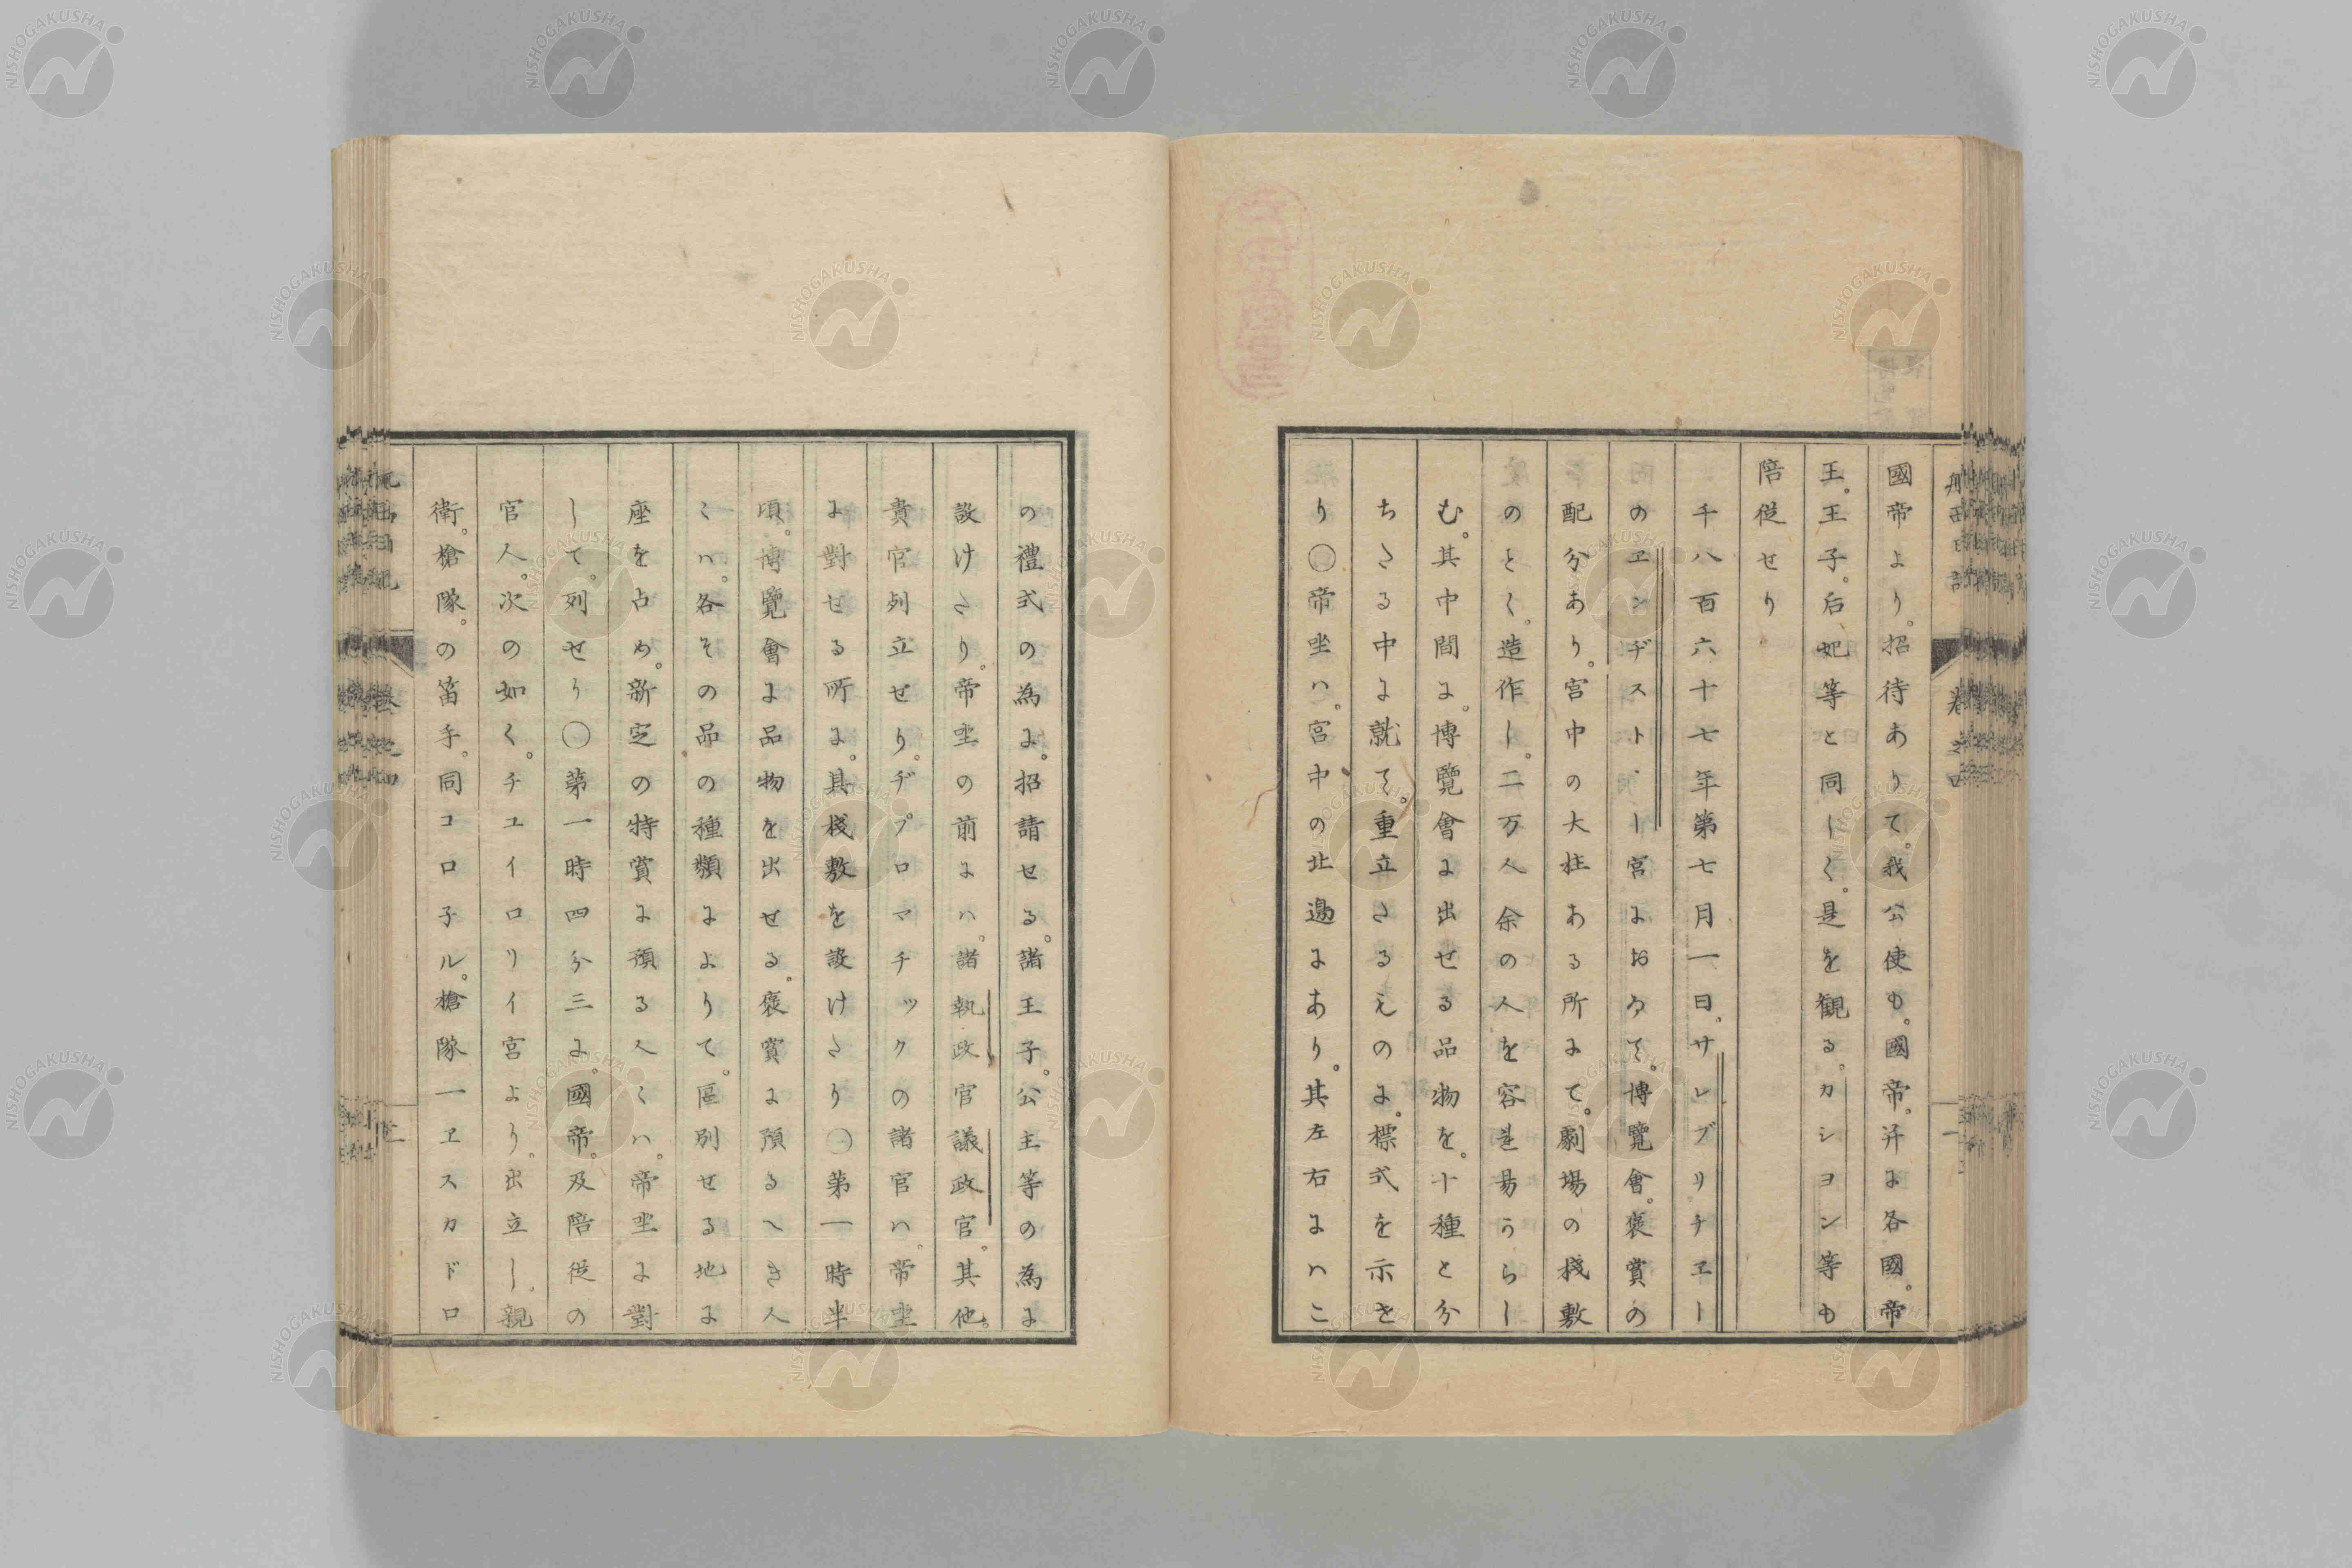 國帝より。招待ありて。我公使も。國帝。并に各國。帝
王。王子。后妃等と同しく。是を観る。カシヨン等も
陪従せり
千八百六十七年第七月一日。サレブリチヱー
のヱンヂストリー宮におゐて。博覽會。褒賞の
配分あり。宮中の大柱ある所にて。劇場の棧敷
のとく。造作し。二万人余の人を容る易うらし
む。其中間に。博覽會に出せる品物を。十種と分
ちたる中に就て。重立たるものに。標式を示せ
り〇帝坐ハ。宮中の北邉にあり。其左右にハこ
の禮式の為に。招請せる。諸王子。公主等の為に
設けたり。帝坐の前にハ。諸執政官議政官。其他。
貴官列立せり。ヂプロマチックの諸官ハ。帝坐
に對せる所に。其棧敷を設けたり〇第一時半
頃。博覽會に品物を出せる。褒賞に預るへき人
くハ。各その品の種類によりて。區別せる地に
座を占め。新定の特賞に預る人くハ。帝坐に對
して。列せり〇第一時四分三に。國帝。及陪従の
官人。次の如く。チユイロリイ宮より。出立し。親
衛。槍隊。の笛手。同コロ子ル。槍隊一ヱスカドロ